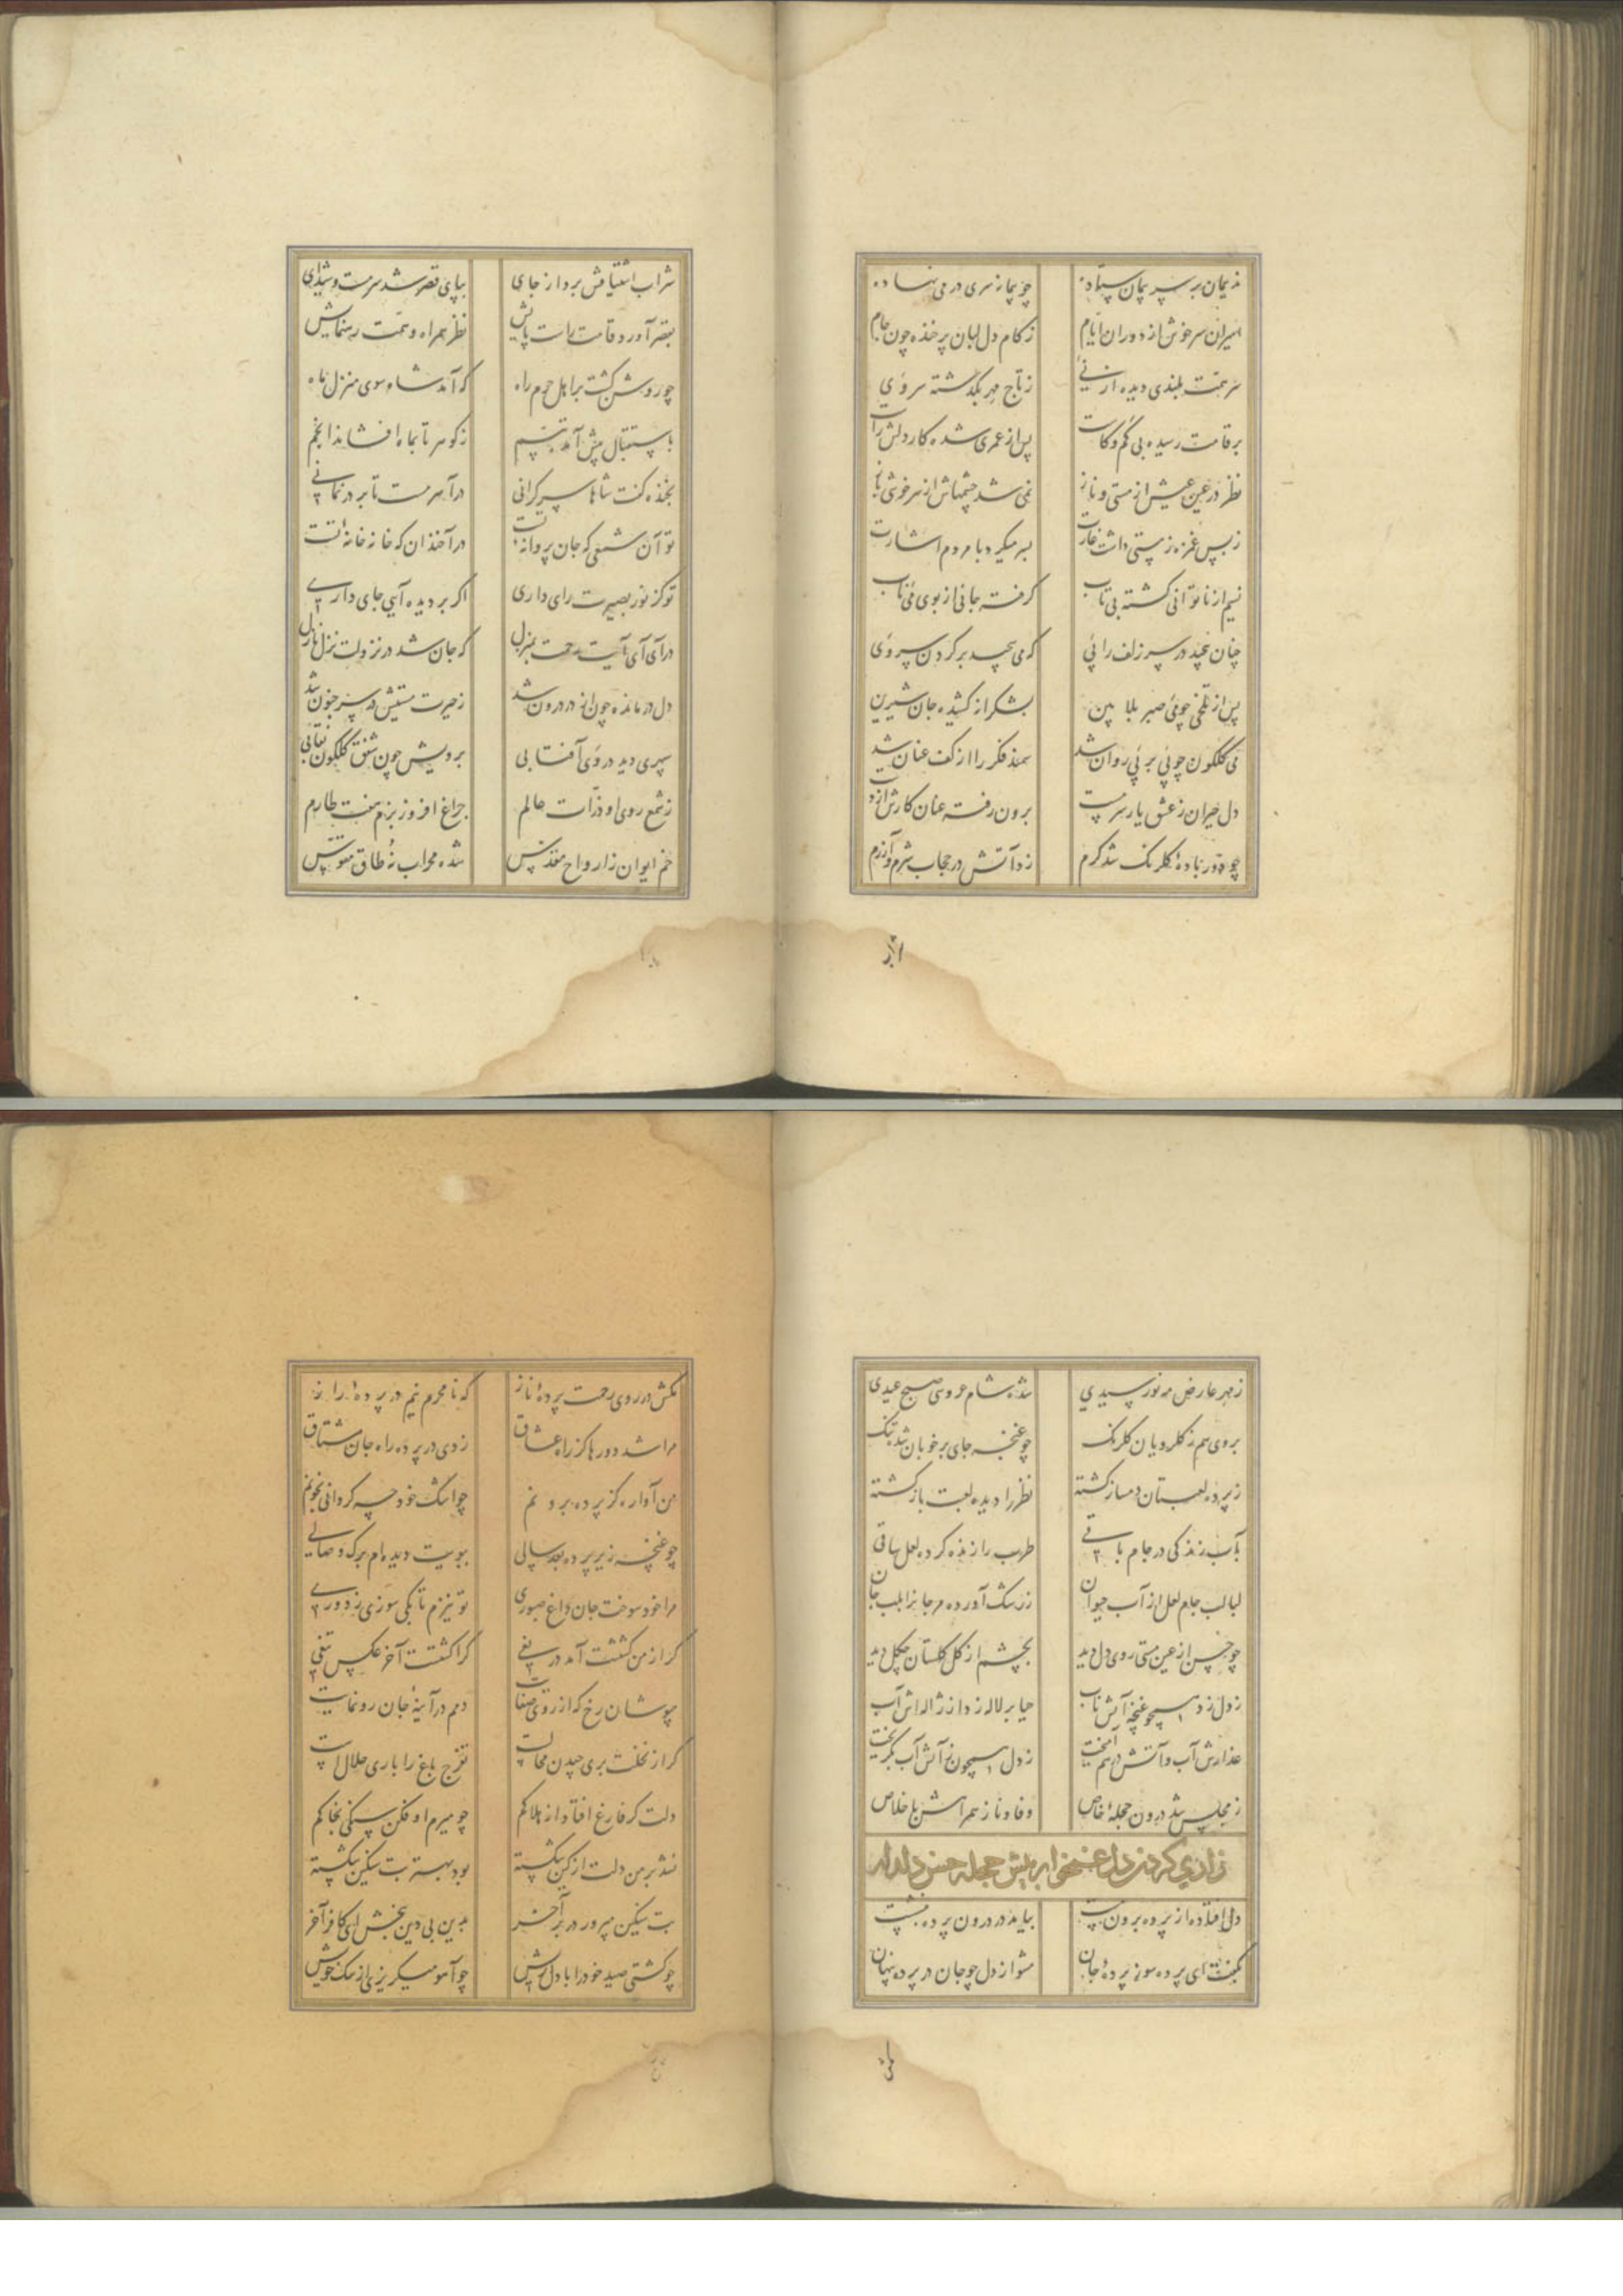 ندیمان بر سر پیمان ستاده چو پیمانه سری در می نهاده
اسیران سرخوش از دوران ایام ز کام دل لبان پر خنده چون جام
سر همت بلندی دیده از نی ز تاج مهر بگذشته سر وی
بر قامت رسیده بی کم و کاست پس از عمری شده کار دلش راست
نظر در عین عیش از مستی و ناز نمی شد چشمهاش از سرخوشی باز
ز بس غمزه ز مستی داشت غارت بسر میکرد با مردم اشارت
نسیم از ناتوانی گشته بی تاب گرفته جانی از بوی می ناب
چنان پیچید در سر زلف را پی که می پیچید بر گردن سر وی
پس از تلخی چو نی صبر بلا بین بشکرانه کشیده جان شیرین
می گلگون چو پی بر پی روان شد سمند فکر را از کف عنان شد
دل حیران ز عشق یار سرمست برون رفته عنان کارش از دست
چو دور باده گلرنگ شد گرم زد آتش در حجاب شرم و آزرم
شراب اشتیاقش برد از جای بپای قصر شد سرمست و شیدای
بقصر آورد قامت راست پایش نظر همراه و همت رهنمایش
چو روشن گشت بر اهل حرم راه که آمد شاه سوی منزل ماه
باستقبال پیش آمد تبسم ز گوهر تا بماه افشاند انجم
بخنده گفت شاها سر گرانی درآ سرمست تا بر در نمانی
تو آن شمعی که جان پروانه تست درآ خندان که خانه خانه تست
تو کز نور بصیرت رای داری اگر بر دیده آیی جای داری
درآی آی آیت رحمت بمنزل که جان شد در نزولت نزل نازل
دل درمانده چون از در درون شد ز حیرت مستیش در سر جنون شد
سپهری دید در وی آفتابی برویش چون شفق گلگون نقابی
ز شمع روی او ذرات عالم چراغ افروز بزم هفت طارم
خم ایوان ز ارواح مقدس شده محراب نه طاق مقوس
ز مهر عارض مه نور سپیدی شده شام عروسی صبح عیدی
بروی هم ز گلرویان گلرنگ چو غنچه جای بر خوبان شده تنگ
ز پرده لعبتان دمساز گشته نظر را دیده لعبت باز گشته
بآب زندگی در جام باقی طرب را زنده کرده لعل ساقی
لبالب جام لعل از آب حیوان ز رشک آورده مرجانرا بلب جان
چو حسن از عین مستی روی دل دید بچشم از گل گلستان چگل دید
ز دل زد همچو غنچه آتش ناب حیا بر لاله زد از ژاله اش آب
عذارش آب و آتش درهم آمیخت ز دل همچون بر آتش آب بگریخت
ز مجلس شد درون حجله خاص وفا و ناز همراهش باخلاص
زاری کردن دل غمخوار پیش حجله حسن دلدار
دل افتاده از پرده برون مست بیامد در درون پرده بنشست
بگفت ای پرده سوز پرده جان مشو از دل چو جان در پرده پنهان
مکش در روی رحمت پرده ناز که نامحرم نیم در پرده راز
مرا شد دورها کز راه عشاق زدی در پرده راه جان مشتاق
من آواره کز پرده برونم چو اشک خود چه گردانی بخونم
چو غنچه زیر پرده بعد سالی ببویت دیده ام برگ وصالی
مرا خود سوخت جان داغ صبوری تو نیزم تا بکی سوزی ز دوری
گر از من کشتنت آمد دریغی کرا کشتست آخر عکس تیغی
مپوشان رخ که از روی صفات دمم در آینه جان رونمایست
گر از نخلت بری چیدن محالست تفرج باغ را باری حلالست
دلت گر فارغ افتاد از هلاکم چو میرم او فکن سنگی بخاکم
نشد بر من دلت از کین شکسته بود بهتر بت سنگین شکسته
بت سنگین مپرور در بر آخر بدین بی دین ببخش ای کافر آخر
چو کشتی صید خود را با دل ریش چو آهو میگریزی از سگ خویش